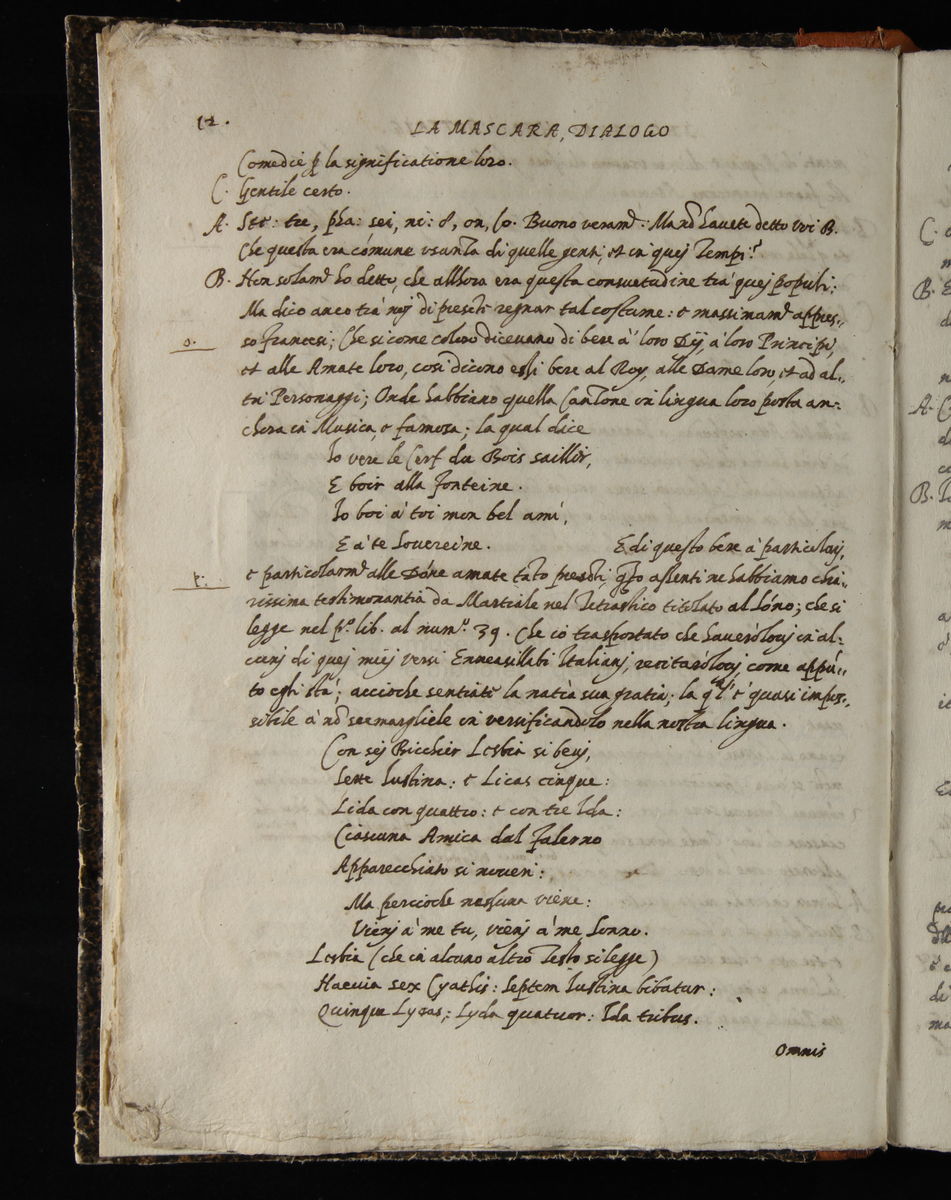 12.
LA MASCARA, DIALOGO
Comedie p la significatione loro.
C. Gentile certo.
A. Ste: tre, pha: sei, ni: 8, on, so. Buono veram.e: Ma nõ havete detto voi B.
Che questa era cómune usanza di quelle genti, et in quej Tempi?
B. Non solam.e ho detto, che allhora era questa consuetudine trà quej populi:
Ma dico anco trà noj di preséti regnar tal costume: e massinam.e appres-
o. so francesi; Che si come coloro diceuano di bere à loro Dij, à loro Principi,
et alle Amate loro, così dicono essi bere al Roy, alle Dame loro, et ad al-
tri Personaggi; Onde habbiano quella Canzone in lingua loro posta an-
chora in Musica, e famosa; la qual dice
Io vere le Cerf du Bois saillir,
E boir alla fonteine.
Io boi à toi mon bel amí,
E à te Souereine. E di questo bere à particolarj,
p. e particolarm.e alle Dóne amate táto preséti qto assenti ne habbiamo chia-
rissima testimonantia da Martiale nel Tetrastico titolato al Sóno; che si
legge nel p.o lib. al num.o 39. Che io trasportato che havendolo in al-
cunj di quej miej versi Enneasillabi Italianj, recitaròlovj come appú-
to egli stà; accioche sentiate la natia sua gratia; la ql è quasi impos-
sibile à nõ scemargliele in versificandolo nella nostra lingua.
Con sej Bicchier Lesbia si bevj,
Sette Iustina: e Licas cinque:
Lida con quattro: e con tre Ida:
Ciascuna Amica dal falerno
Apparecchiato si noueri:
Ma percioche nessuna viene:
Vienj à me tu, vienj à me Sonno.
Lesbia (che in alcuno altro Testo si legge)
Naevia sex Cyathis: Septem Iustina bibatur:
Quinque Lycas; Lyda quatuor: Ida tribus.
Omnis